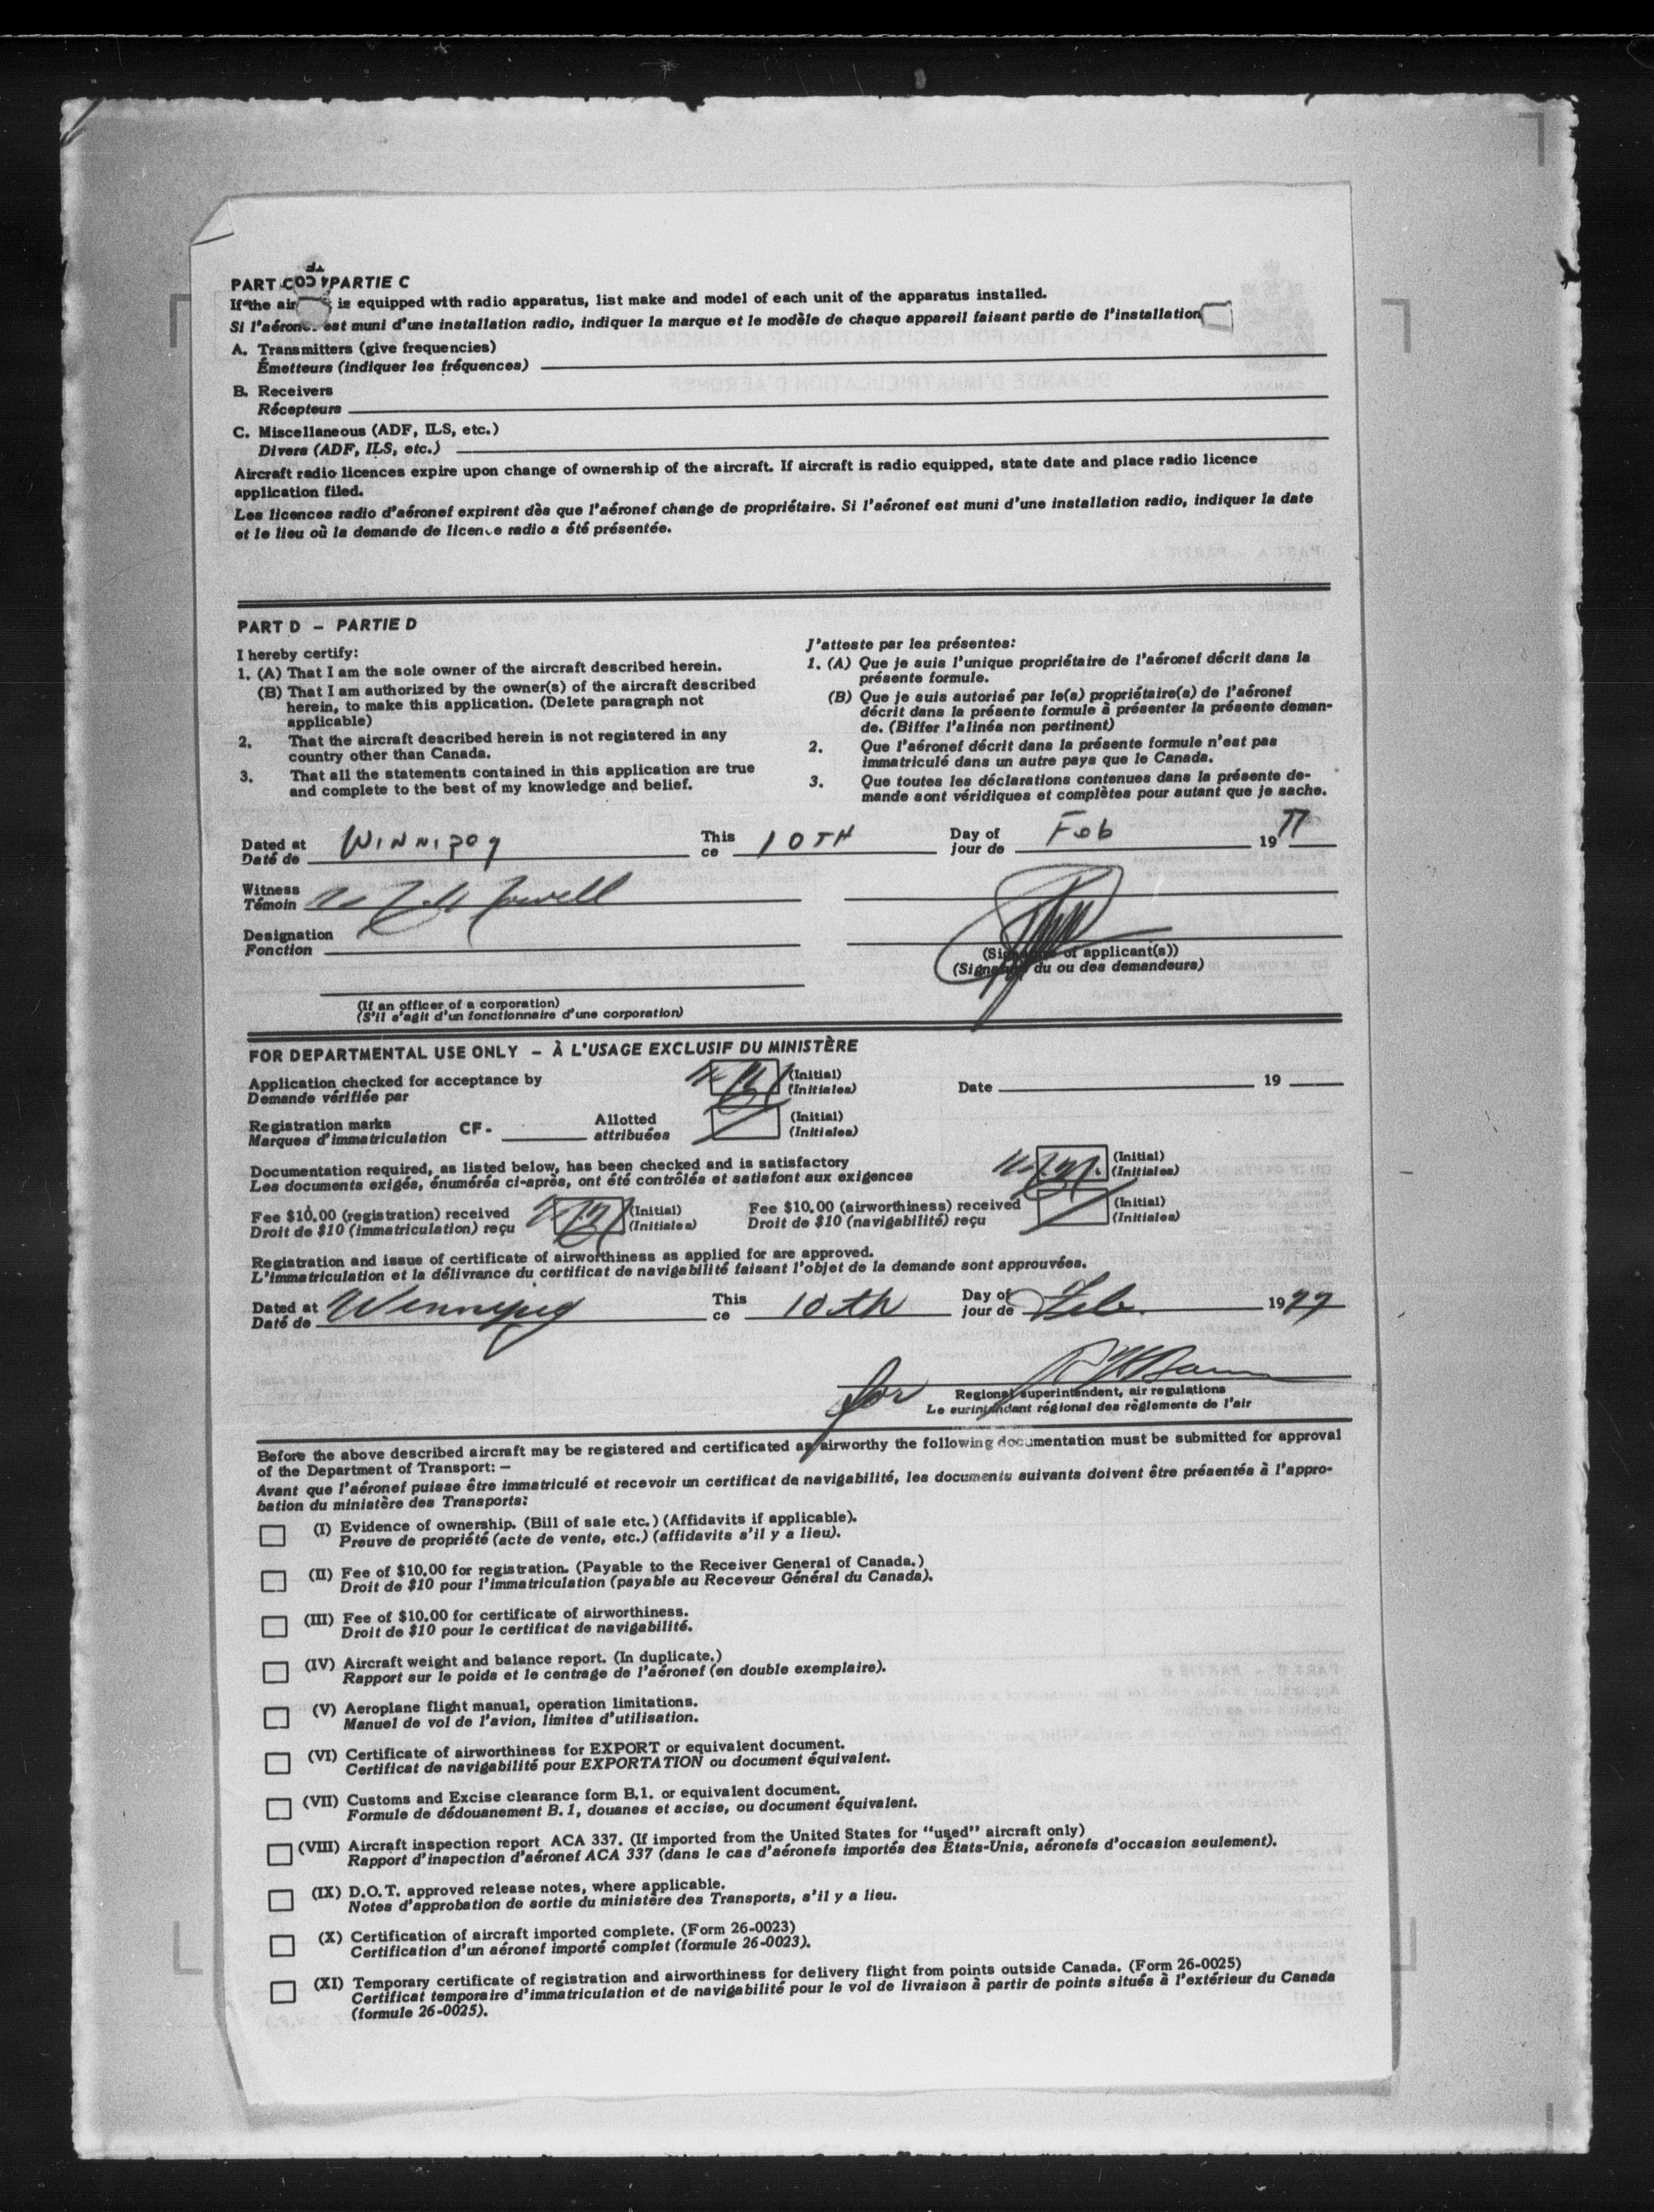 PART C PARTIE C
If the air is equipped with radio apparatus, list make and model of each unit of the apparatus installed.
Si l'aéron est muni d'une installation radio, indiquer la marque et le modèle de chaque appareil faisant partie de l'installation
A. Transmitters (give frequencies)
Émetteurs (indiquer les fréquences)
B. Receivers
Récepteurs
C. Miscellaneous (ADF, ILS, etc.)
Divers (ADF, ILS, etc.)
Aircraft radio licences expire upon change of ownership of the aircraft. If aircraft is radio equipped, state date and place radio licence
application filed.
Les licences radio d'aéronef expirent dès que l'aéronef change de propriétaire. Si l'aéronef est muni d'une installation radio, indiquer la date
et le lieu où la demande de licence radio a été présentée.
PART D – PARTIE D
I hereby certify:
1. (A) That I am the sole owner of the aircraft described herein.
(B) That I am authorized by the owner(s) of the aircraft described
herein, to make this application. (Delete paragraph not
applicable)
2. That the aircraft described herein is not registered in any
country other than Canada.
3. That all the statements contained in this application are true
and complete to the best of my knowledge and belief.
J'atteste par les présentes:
1. (A) Que je suis l'unique propriétaire de l'aéronef décrit dans la
présente formule.
(B) Que je suis autorisé par le(s) propriétaire(s) de l'aéronef
décrit dans la présente formule à présenter la présente deman-
de. (Biffer l'alinéa non pertinent)
2. Que l'aéronef décrit dans la présente formule n'est pas
immatriculé dans un autre pays que le Canada.
3. Que toutes les déclarations contenues dans la présente de-
mande sont véridiques et complètes pour autant que je sache.
Dated at WINNIPEG This 10TH Day of Feb 1977
Daté de ce jour de
Witness
Témoin
Designation
Fonction
(Signature of applicant(s))
(Signature du ou des demandeurs)
(If an officer of a corporation)
(S'il s'agit d'un fonctionnaire d'une corporation)
FOR DEPARTMENTAL USE ONLY – À L'USAGE EXCLUSIF DU MINISTÈRE
Application checked for acceptance by (Initial) Date 19
Demande vérifiée par (Initiales)
Registration marks CF- Allotted (Initial)
Marques d'immatriculation attribuées (Initiales)
Documentation required, as listed below, has been checked and is satisfactory (Initial)
Les documents exigés, énumérés ci-après, ont été contrôlés et satisfont aux exigences (Initiales)
Fee $10.00 (registration) received (Initial) Fee $10.00 (airworthiness) received (Initial)
Droit de $10 (immatriculation) reçu (Initiales) Droit de $10 (navigabilité) reçu (Initiales)
Registration and issue of certificate of airworthiness as applied for are approved.
L'immatriculation et la délivrance du certificat de navigabilité faisant l'objet de la demande sont approuvées.
Dated at Winnipeg This 10th Day of Feb. 1977
Daté de ce jour de
for
Regional superintendent, air regulations
Le surintendant régional des règlements de l'air
Before the above described aircraft may be registered and certificated as airworthy the following documentation must be submitted for approval
of the Department of Transport: –
Avant que l'aéronef puisse être immatriculé et recevoir un certificat de navigabilité, les documents suivants doivent être présentés à l'appro-
bation du ministère des Transports:
(I) Evidence of ownership. (Bill of sale etc.) (Affidavits if applicable).
Preuve de propriété (acte de vente, etc.) (affidavits s'il y a lieu).
(II) Fee of $10.00 for registration. (Payable to the Receiver General of Canada.)
Droit de $10 pour l'immatriculation (payable au Receveur Général du Canada).
(III) Fee of $10.00 for certificate of airworthiness.
Droit de $10 pour le certificat de navigabilité.
(IV) Aircraft weight and balance report. (In duplicate.)
Rapport sur le poids et le centrage de l'aéronef (en double exemplaire).
(V) Aeroplane flight manual, operation limitations.
Manuel de vol de l'avion, limites d'utilisation.
(VI) Certificate of airworthiness for EXPORT or equivalent document.
Certificat de navigabilité pour EXPORTATION ou document équivalent.
(VII) Customs and Excise clearance form B.1. or equivalent document.
Formule de dédouanement B.1, douanes et accise, ou document équivalent.
(VIII) Aircraft inspection report ACA 337. (If imported from the United States for "used" aircraft only)
Rapport d'inspection d'aéronef ACA 337 (dans le cas d'aéronefs importés des États-Unis, aéronefs d'occasion seulement).
(IX) D.O.T. approved release notes, where applicable.
Notes d'approbation de sortie du ministère des Transports, s'il y a lieu.
(X) Certification of aircraft imported complete. (Form 26-0023)
Certification d'un aéronef importé complet (formule 26-0023).
(XI) Temporary certificate of registration and airworthiness for delivery flight from points outside Canada. (Form 26-0025)
Certificat temporaire d'immatriculation et de navigabilité pour le vol de livraison à partir de points situés à l'extérieur du Canada
(formule 26-0025).